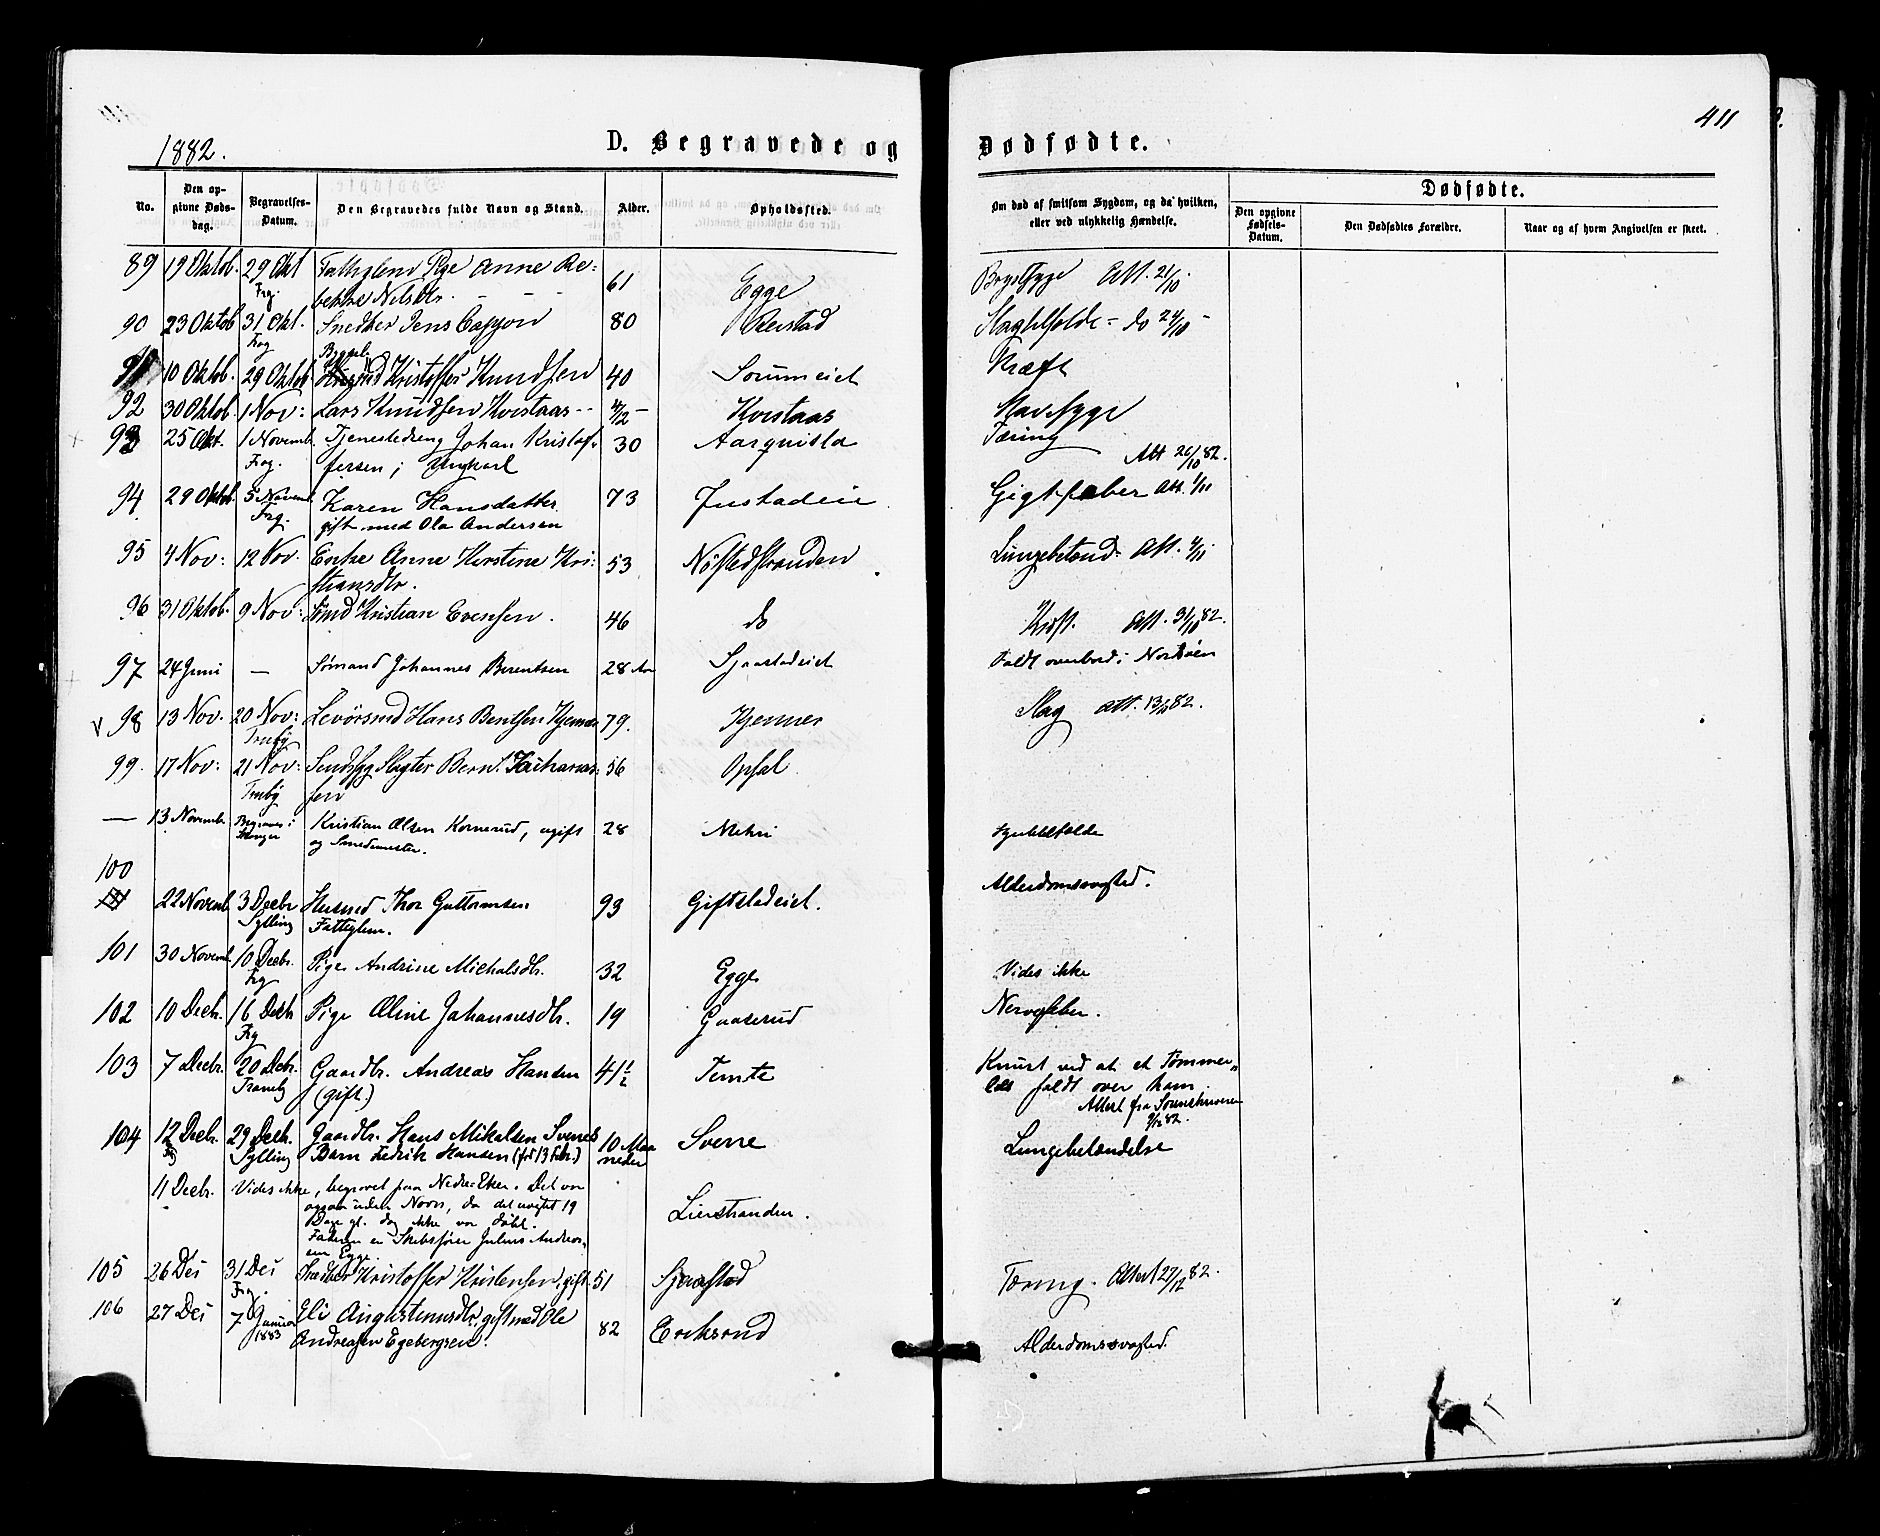 411
1882.
D. Begravede og Dødfødte.
No.
Den op-
givne Døds-
dag.
Begravelses-
Datum.
Den Begravedes fulde Navn og Stand.
Alder.
Opholdssted.
Om død af smitsom Sygdom, og da hvilken,
eller ved ulykkelig Hændelse.
Dødfødte.
Den opgivne
Fødsels-
Datum.
Den Dødfødtes Forældre.
Naar og af hvem Angivelsen er skeet.
89 19 Oktob. 29 Okt Fattiglem Pige Anne Re- 61 Egge Brystsyge Att. 21/10.
Frg. bekka Nilsdtr.
90 23 Oktob 31 Okt. Snedker Jens 80 Reistad Slagtilfælde - do 24/10
Frg
91 10 Oktob. 29 Oktob Kristoffer Knudsen 40 Sørumeiet Kræft
92 30 Oktob. 1 Nov: Lars Knudsen Kvistaas 4/2 Kvistaas Mavesyge
93 25 Okt. 1 Novemb. Tjenestedreng Johan Kristof- 30 Aarquisla Tæring
Frg. fersen; Ungkarl Att 26/10 82.
94 29 Oktob. 5 Novemb. Karen Hansdatter 73 Justadeie Gigtfeber Att. 1/11
Frg. gift med Ola Andersen
95 4 Nov: 12 Nov. Enke Anne Kirstine Kri- 53 Nøstedstranden Lungebetænd- Att. 4/11
stiansdtr.
96 31 Oktob. 9 Nov: Kristian Evensen. 46 do Kræft. Att. 31/10 82.
97 24 Juni — Sømand Johannes Berentsen 28 Aar Sjaastadeiet Faldt overbord i Nordsøen
V 98 13 Nov. 20 Nov: Hans Bentsen Kjenner 79. Kjenner Slag Att. 13/11 82.
Tranby
99. 17 Nov: 21 Nov: Sindssyg Slagter Bernt Zacharias- 56 Opsal
Tranby sen
— 13 Novembr Begraves i Kristian Olsen Kornerud, ugift 28 Mehri
og Smedemester.
100
22 Novemb. 3 Decbr Husmd Thor Guttormsen 93 Giftstadeiet. Alderdomssvaghed.
Sylling Fattiglem.
101 30 Novemb. 10 Decbr. Pige Andrine Michalsdtr. 32 Egge Vides ikke
Frg
102 10 Decbr. 16 Decbr Pige Oline Johannesdtr. 19 Gaaserud Nervefeber.
Frg
103 7 Decbr. 20 Decbr. Gaardbr. Andreas Hansen 41 1/2 Temte Knust ved at et Tømmer-
Tranby (gift.) læs faldt over ham.
Attest fra Sorenskriveren
9/12 82.
104 12 Decbr. 29 Decbr. Gaardbr. Hans Mikalsen Sverres 10 Maa Sverre Lungebetændelse
Sylling Barn Fedrik Hansen (fød 13 Febr.) neder
11 Decbr. Vides ikke, begravet paa Nedre-Eker. Det var Lierstranden.
ogsaa uden Navn, da det uagtet 19
Dage gl. dog ikke var døbt.
Faderen er Skibsfører Julius Andreas-
sen Egge.
105 26 Des 31 Des Snedker Kristoffer Kristensen, gift 51 Sjaastad Tæring. Attest 27/12 82.
Frg.
106 27 Des 7 Januar Eli Augustinusdtr. gift med Ole 82 Eriksrud Alderdomssvaghed.
1883 Andreasen Egebergseie.